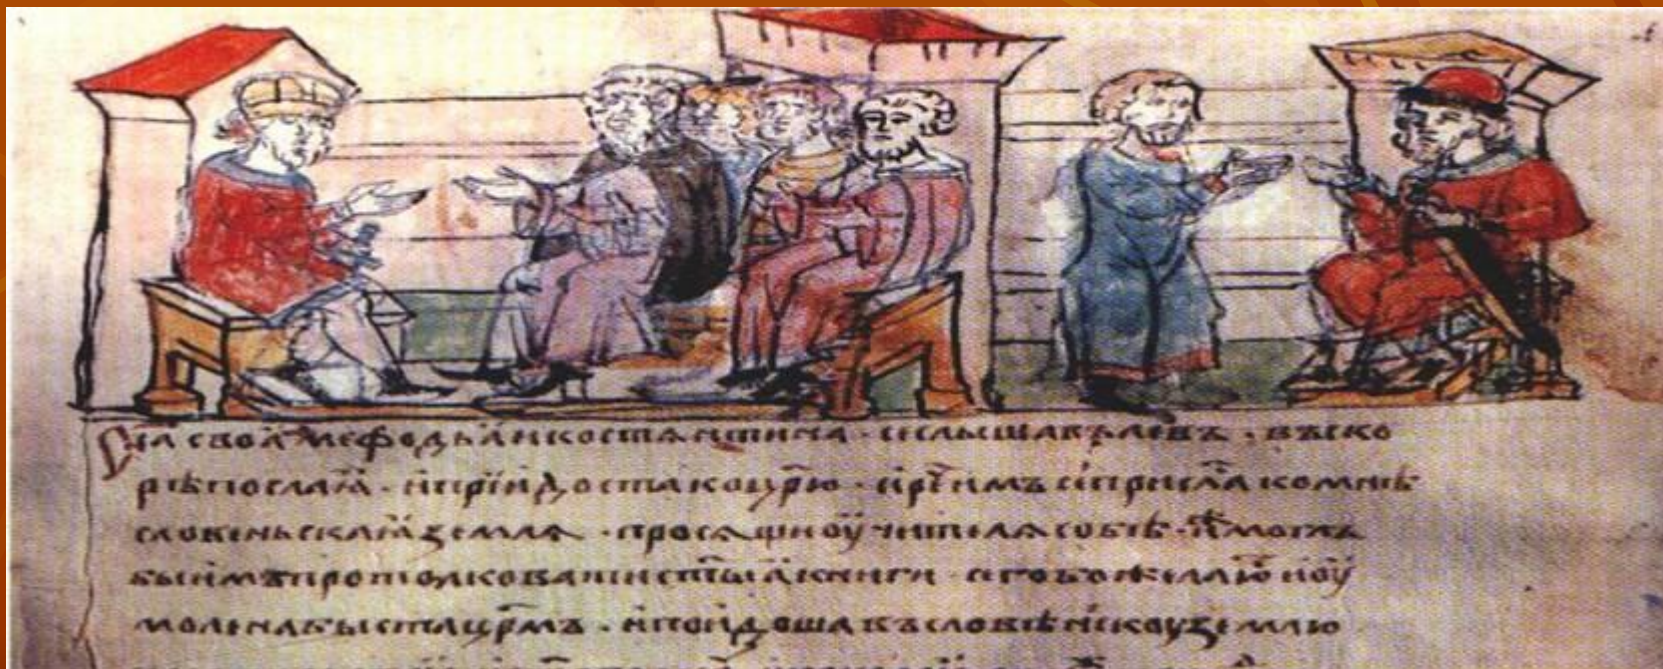 сна своꙗ мефодьꙗ и костѧнтина · слышавъ левъ · въско
рѣ посла ꙗ · и прїидоста ко цр҃ю · и рече имъ се присла ко мнѣ
словеньскаꙗ землѧ · просѧщи оучителѧ собѣ · моглъ
бы имъ протолковати ст҃ыꙗ книги · сего бо желаю и оу
молена быста цр҃мъ · и поидоша въ словѣньскоую землю